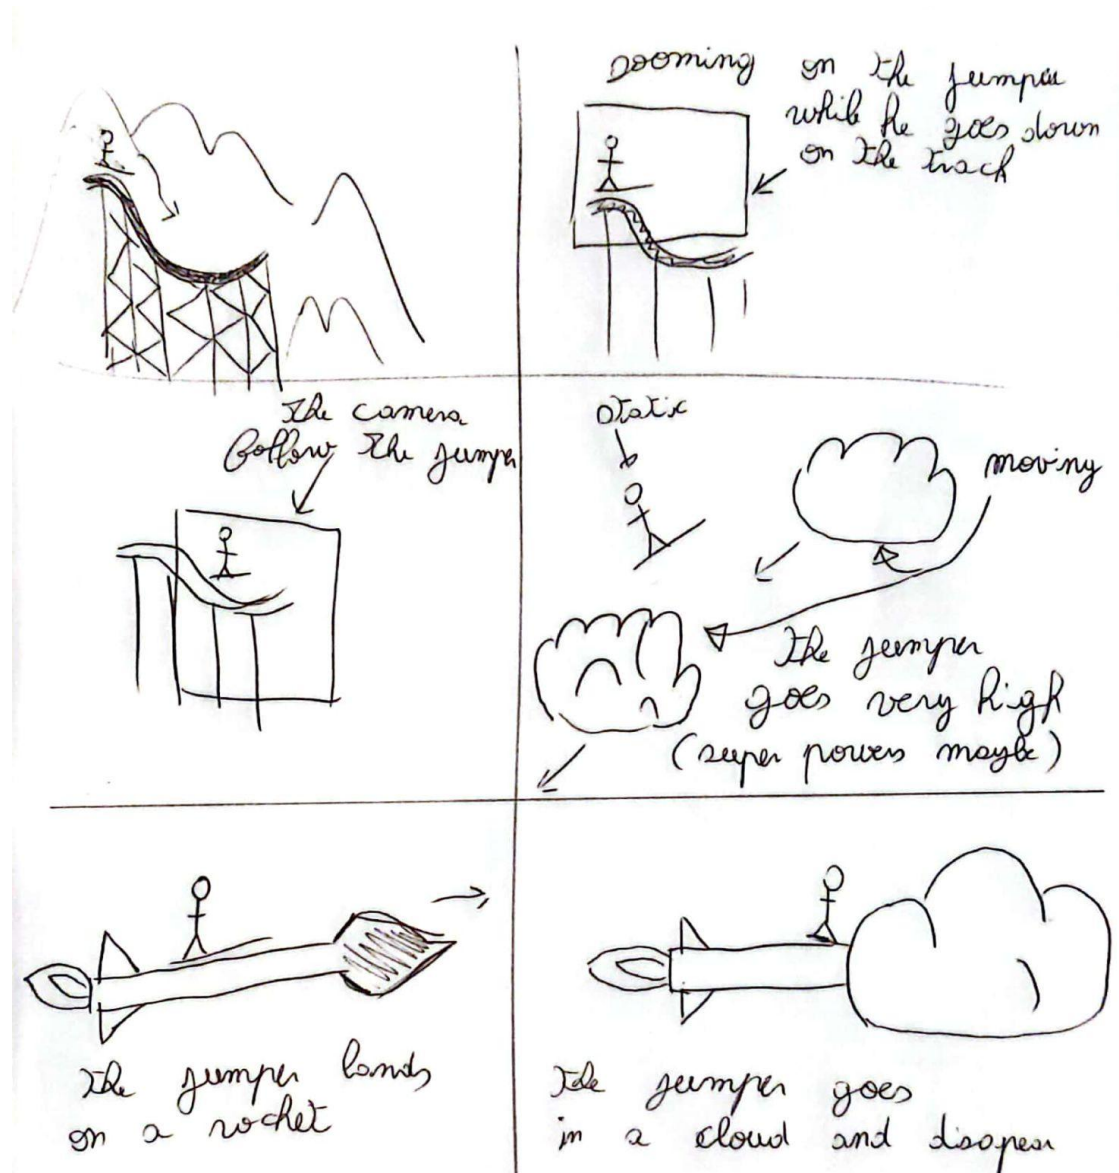 Zooming on the jumper
while he goes down
on the track
the camera
follow the jumper
static
moving
the jumper
goes very high
(super powers maybe)
the jumper lands
on a rocket
the jumper goes
in a cloud and disapear